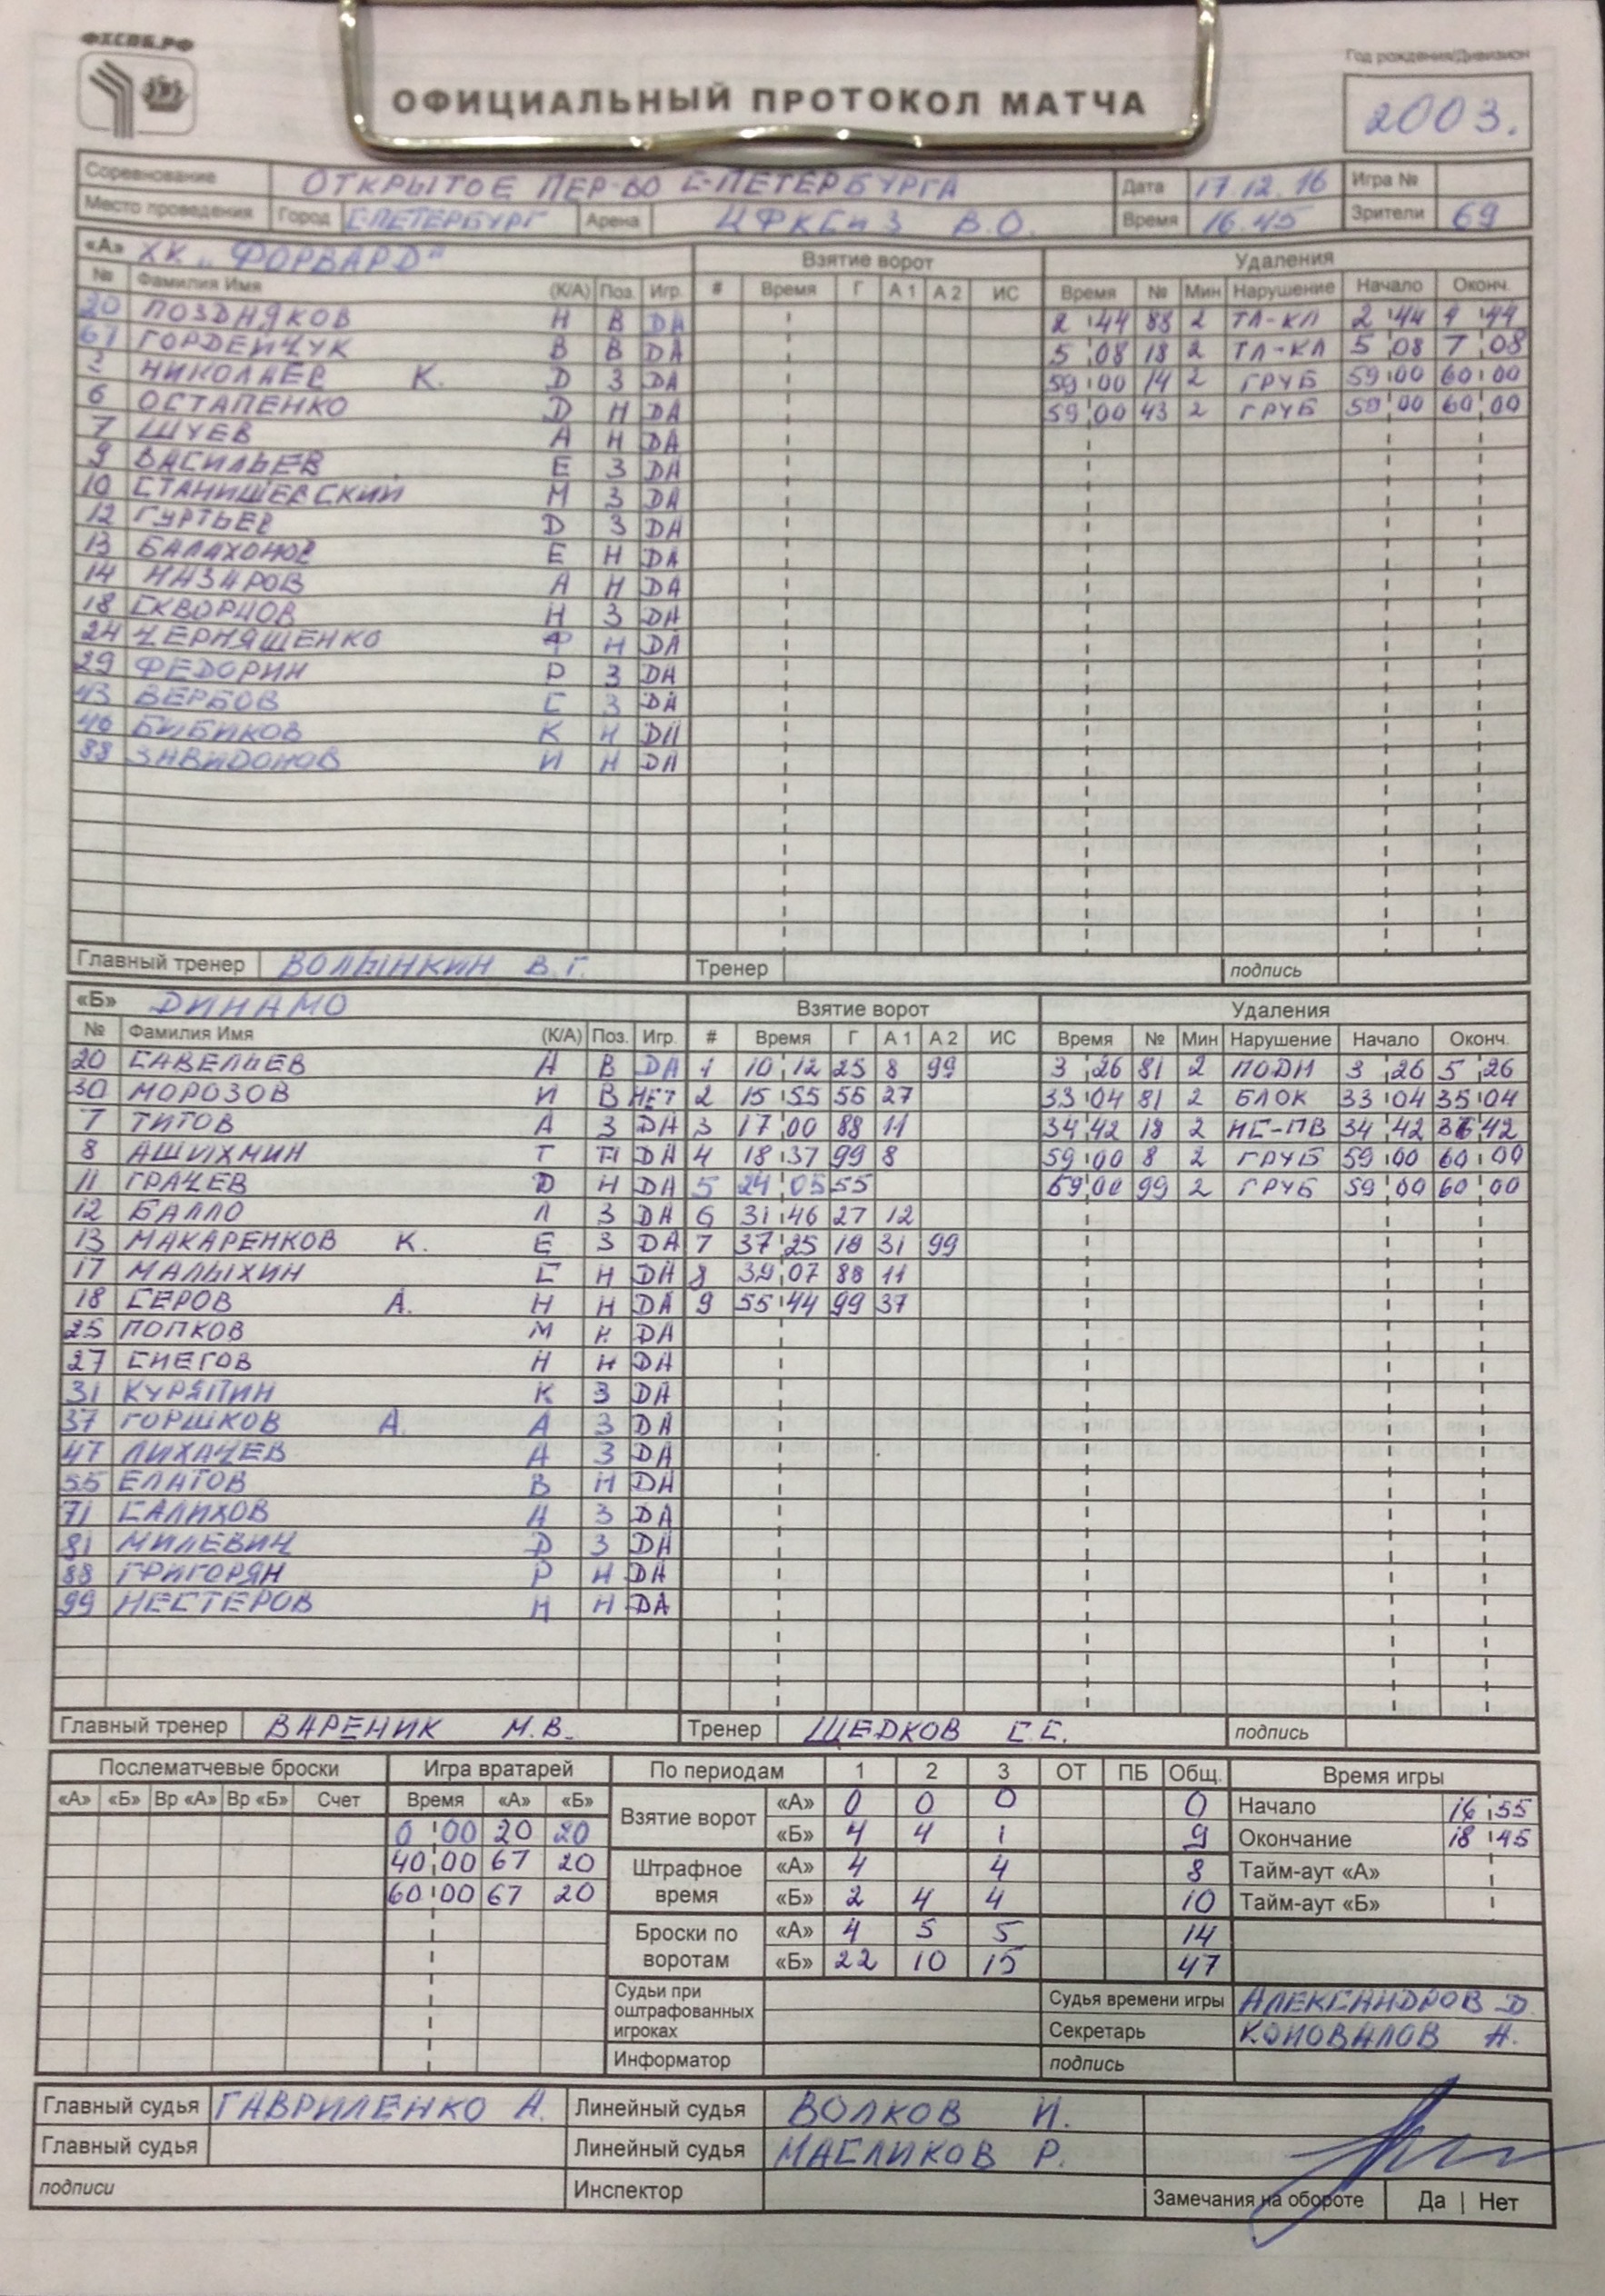 ФХСПБ.РФ
ОФИЦИАЛЬНЫЙ ПРОТОКОЛ МАТЧА
Год рождения/Дивизион
2003.
Соревнование ОТКРЫТОЕ ПЕР-ВО С-ПЕТЕРБУРГА Дата 17.12.16 Игра №
Место проведения Город С-ПЕТЕРБУРГ Арена ЦФКСиЗ В.О. Время 16.45 Зрители 69
«А» ХК „ФОРВАРD" Взятие ворот Удаления
№ Фамилия Имя (К/А) Поз. Игр. # Время Г А 1 А 2 ИС Время № Мин Нарушение Начало Оконч.
20 ПОЗDНЯКОВ Н В DA 2 44 88 2 ТЛ-КЛ 2 44 4 44
67 ГОРDЕЙЧУК В В DA 5 08 18 2 ТЛ-КЛ 5 08 7 08
2 НИКОЛАЕВ К. D З DA 59 00 14 2 ГРУБ 59 00 60 00
6 ОСТАПЕНКО D Н DA 59 00 43 2 ГРУБ 59 00 60 00
7 ШУЕВ А Н DA
9 ВАСИЛЬЕВ Е З DA
10 СТАНИШЕВСКИЙ М З DA
12 ГУРТЬЕВ D З DA
13 БАЛАХОНОВ Е Н DA
14 НАЗАРОВ А Н DA
18 СКВОРЦОВ Н З DA
24 ЧЕРНЯЩЕНКО Ф Н DA
29 ФЕDОРИН Р З DA
43 ВЕРБОВ С З DA
46 БИБИКОВ К Н DA
88 ЗАВИDОНОВ И Н DA
Главный тренер ВОЛЫНКИН В.Г. Тренер подпись
«Б» DИНАМО Взятие ворот Удаления
№ Фамилия Имя (К/А) Поз. Игр. # Время Г А 1 А 2 ИС Время № Мин Нарушение Начало Оконч.
20 САВЕЛЬЕВ А В DA 1 10 12 25 8 99 3 26 81 2 ПОDН 3 26 5 26
30 МОРОЗОВ И В НЕТ 2 15 55 55 27 33 04 81 2 БЛОК 33 04 35 04
7 ТИТОВ А З DA 3 17 00 88 11 34 42 18 2 НС-ПВ 34 42 36 42
8 АШИХМИН Т Н DA 4 18 37 99 8 59 00 8 2 ГРУБ 59 00 60 00
11 ГРАЧЕВ D Н DA 5 24 05 55 59 00 99 2 ГРУБ 59 00 60 00
12 БАЛЛО Л З DA 6 31 46 27 12
13 МАКАРЕНКОВ К. Е З DA 7 37 25 18 31 99
17 МАЛЫХИН С Н DA 8 39 07 88 11
18 СЕРОВ А. Н Н DA 9 55 44 99 37
25 ПОПКОВ М Н DA
27 СНЕГОВ Н Н DA
31 КУРЯПИН К З DA
37 ГОРШКОВ А. А З DA
47 ЛИХАЧЕВ А З DA
55 ЕЛАТОВ В Н DA
71 САЛИХОВ А З DA
81 МИЛЕВИЧ D З DA
88 ГРИГОРЯН Р Н DA
99 НЕСТЕРОВ Н Н DA
Главный тренер ВАРЕНИК М.В. Тренер ЩЕDКОВ С.С. подпись
Послематчевые броски Игра вратарей По периодам 1 2 3 ОТ ПБ Общ. Время игры
«А» «Б» Вр «А» Вр «Б» Счет Время «А» «Б» Взятие ворот «А» 0 0 0 0 Начало 16 55
0 00 20 20 «Б» 4 4 1 9 Окончание 18 45
40 00 67 20 Штрафное время «А» 4 4 8 Тайм-аут «А»
60 00 67 20 «Б» 2 4 4 10 Тайм-аут «Б»
Броски по воротам «А» 4 5 5 14
«Б» 22 10 15 47
Судьи при оштрафованных игроках Судья времени игры АЛЕКСАНDРОВ D.
Секретарь КОНОВАЛОВ А.
Информатор подпись
Главный судья ГАВРИЛЕНКО А. Линейный судья ВОЛКОВ И.
Главный судья Линейный судья МАСЛИКОВ Р.
подписи Инспектор Замечания на обороте Да | Нет